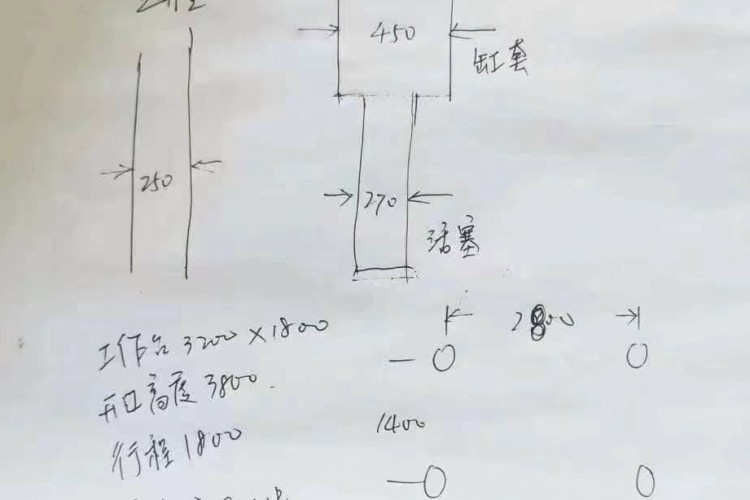 450
缸套
250
270
活塞
工作台 3200×1800
2800
开口高度 3800.
行程 1800
1400